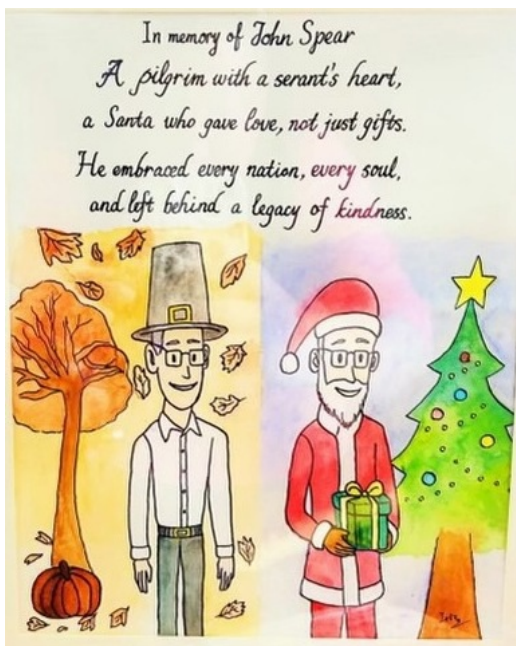 In memory of John Spear
A pilgrim with a serant's heart,
a Santa who gave love, not just gifts.
He embraced every nation, every soul,
and left behind a legacy of kindness.